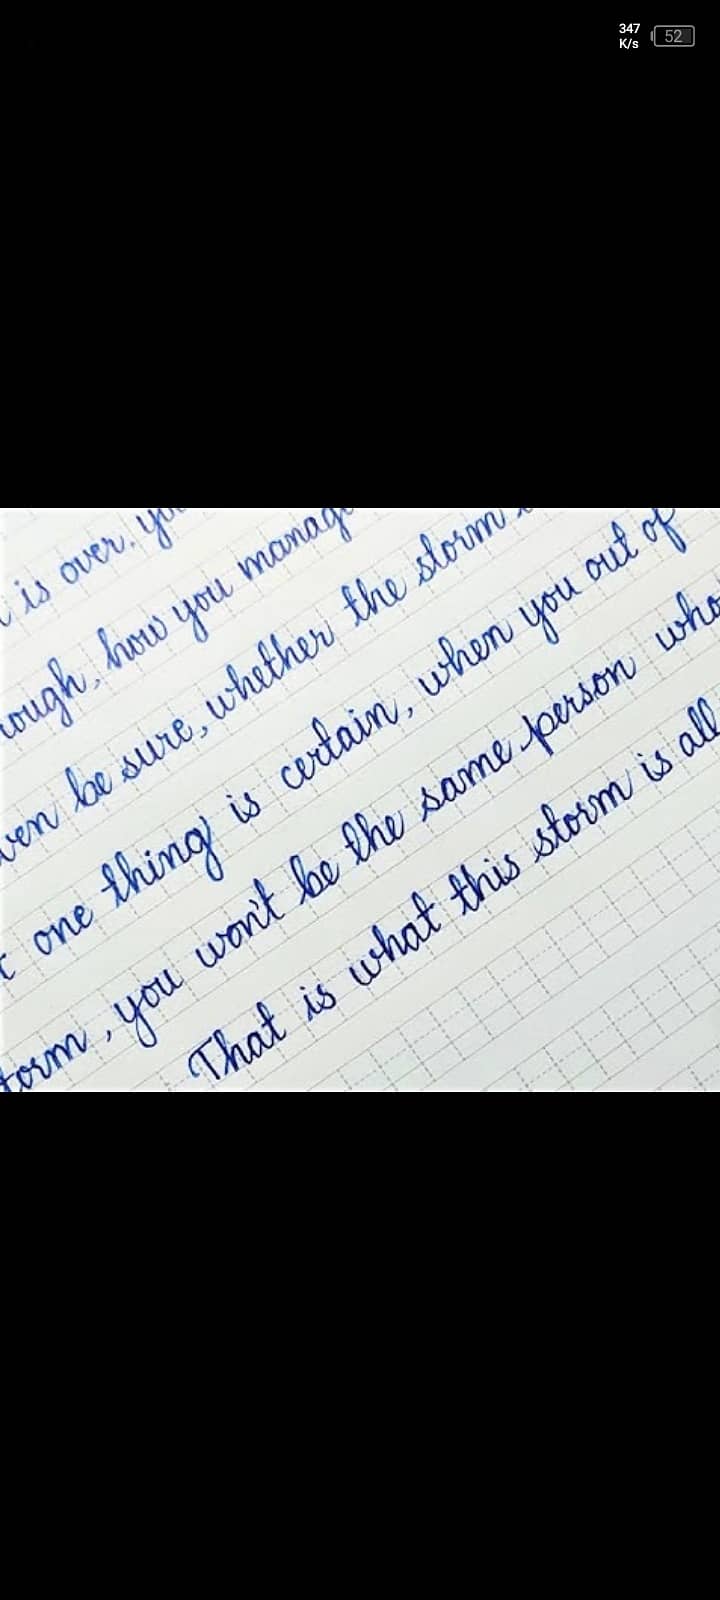 347
K/s 52
is over.
how you
be sure, whether the storm
one thing is certain, when you out of
you won't be the same person
That is what this storm is all